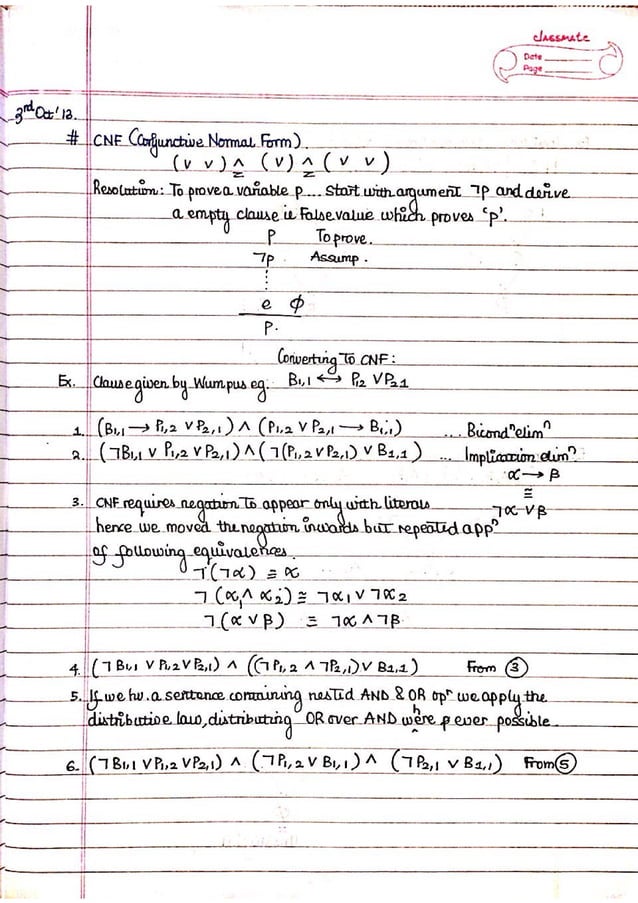 classmate
Date
Page
3rd Oct' 12.
# CNF (Conjunctive Normal Form)
(v v) ∧ (v) ∧ (v v)
Resolution: To prove a variable p... Start with argument ¬p and derive
a empty clause ie False value which proves 'p'.
P To prove.
¬p Assump.
e ϕ
P.
Converting To CNF:
Ex. Clause given by Wumpus eg: B1,1 ⟷ P12 ∨ P2,1
1. (B1,1 → P1,2 ∨ P2,1) ∧ (P1,2 ∨ P2,1 → B1,1) ... Bicondⁿ elimⁿ
2. (¬B1,1 ∨ P1,2 ∨ P2,1) ∧ (¬(P1,2 ∨ P2,1) ∨ B1,1) ... Implication elimⁿ
α → β
≅
¬α ∨ β
3. CNF requires negation To appear only with literals
hence we moved the negation inwards but repeated appⁿ
of following equivalences.
¬(¬α) ≡ α
¬(α1 ∧ α2) ≅ ¬α1 ∨ ¬α2
¬(α ∨ β) ≡ ¬α ∧ ¬β
4. (¬B1,1 ∨ P1,2 ∨ P2,1) ∧ ((¬P1,2 ∧ ¬P2,1) ∨ B1,1) From ③
5. If we hv. a sentence containing nested AND & OR opʳ we apply the
distributive law, distributing OR over AND where p ever possible.
6. (¬B1,1 ∨ P1,2 ∨ P2,1) ∧ (¬P1,2 ∨ B1,1) ∧ (¬P2,1 ∨ B1,1) From ⑤